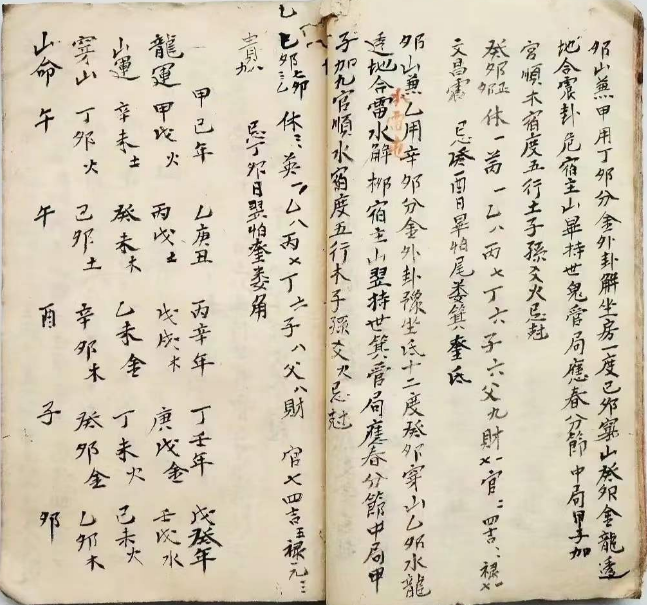 卯山兼甲用丁卯分金外卦解坐房一度己卯穿山癸卯金龍透
地合震卦危宿主山畢持世鬼管局應春分節中局甲子加
宮順木宿度五行土子孫爻火忌尅
癸卯 休一芮一乙八丙七丁六子六父九財七官二四吉
文昌 忌癸酉日畢怕尾婁箕奎氐
卯山兼乙用辛卯分金外卦豫坐氐十二度癸卯穿山乙卯水龍
透地合雷水解柳宿主山翌持世箕管局應春分節中局甲
子加九宮順水宿度五行木子孫爻火忌尅
乙卯 休三英一乙八丙七丁六子八父八財 官七四吉五祿一九三
貴 忌丁卯日翌怕奎婁角
甲己年 乙庚丑 丙辛年 丁壬年 戊癸年
龍運 甲戌火 丙戌土 戊戌木 庚戌金 壬戌水
山運 辛未土 癸未木 乙未金 丁未火 己未火
穿山 丁卯火 己卯土 辛卯木 癸卯金 乙卯木
山命 午 午 酉 子 卯